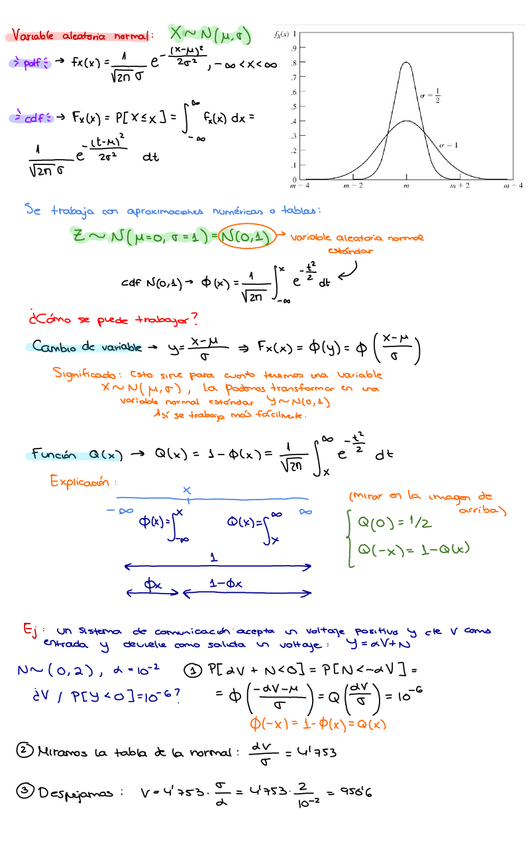 Variable aleatoria normal: X ~ N(μ,σ)
> pdf: → fx(x) = 1/(√2π σ) e^(-(x-μ)²/2σ²), -∞<x<∞
> cdf: → Fx(x) = P[X≤x] = ∫_{-∞}^{∞} fx(x) dx =
1/(√2π σ) e^(-(t-μ)²/2σ²) dt
fx(x) 1
.9
.8
.7
.6
.5
.4
.3
.2
.1
0
σ = 1/2
σ = 1
m − 4 m − 2 m m + 2 m + 4
Se trabaja con aproximaciones numéricas o tablas:
Z ~ N(μ=0, σ=1) = N(0,1) → variable aleatoria normal
estándar
cdf N(0,1) → Φ(x) = 1/√2π ∫_{-∞}^{x} e^(-t²/2) dt
¿Cómo se puede trabajar?
Cambio de variable → y = (x-μ)/σ ⇒ Fx(x) = Φ(y) = Φ((x-μ)/σ)
Significado: Esto sirve para cuando tenemos una variable
X~N(μ,σ), la podemos transformar en una
variable normal estándar Y~N(0,1)
Así se trabaja más fácilmente.
Función Q(x) → Q(x) = 1-Φ(x) = 1/√2π ∫_{x}^{∞} e^(-t²/2) dt
Explicación:
x
-∞ ∞
Φ(x)=∫_{-∞}^{x} Q(x)=∫_{x}^{∞}
1
Φx 1-Φx
(mirar en la imagen de
arriba)
Q(0) = 1/2
Q(-x) = 1-Q(x)
Ej: un sistema de comunicación acepta un voltaje positivo y de V como
entrada y devuelve como salida un voltaje: y=αV+N
N~(0,2), α=10⁻²
¿V / P[Y<0]=10⁻⁶?
① P[αV + N<0] = P[N<-αV] =
= Φ((-αV-μ)/σ) = Q(αV/σ) = 10⁻⁶
Φ(-x) = 1-Φ(x) = Q(x)
② Miramos la tabla de la normal: αV/σ = 4'753
③ Despejamos: V = 4'753 · σ/α = 4'753 · 2/10⁻² = 950'6